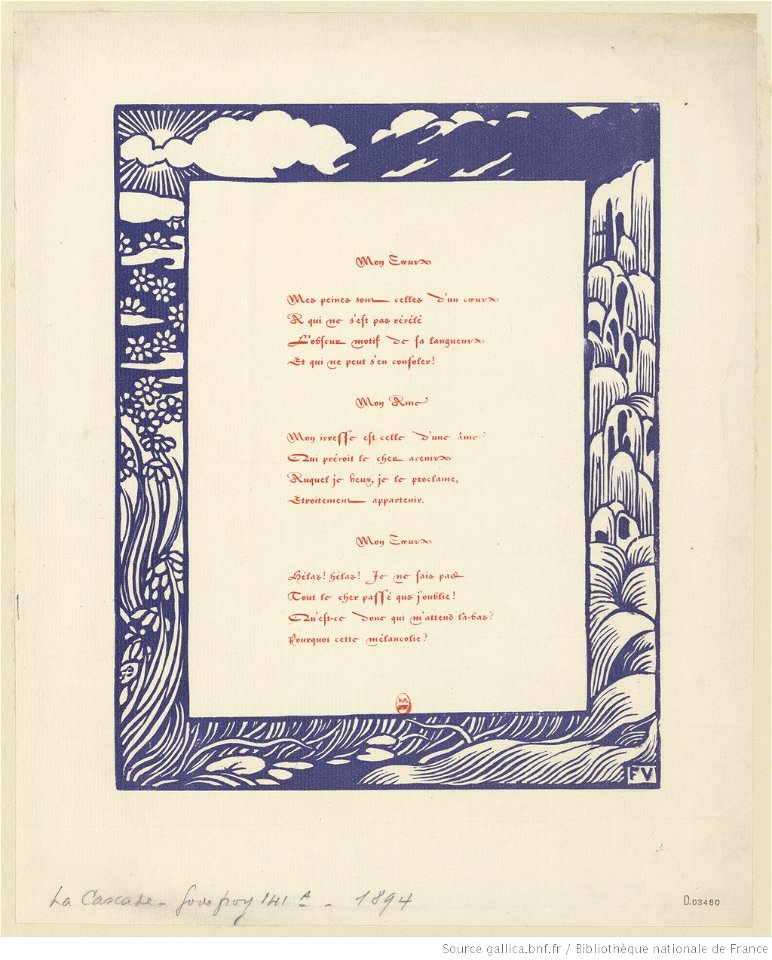 Mon Cœur
Mes peines sont celles d'un cœur
A qui ne s'est pas révélé
L'obscur motif de sa langueur
Et qui ne peut s'en consoler!
Mon Ame
Mon ivresse est celle d'une âme
Qui prévoit le cher avenir
Auquel je veux, je le proclame,
Etroitement appartenir.
Mon Cœur
Hélas! hélas! Je ne sais pas
Tout le cher passé que j'oublie!
Qu'est-ce donc qui m'attend là-bas?
Pourquoi cette mélancolie?
FV
La Cascade - Godefroy 141 A - 1894
D.03480
Source gallica.bnf.fr / Bibliothèque nationale de France